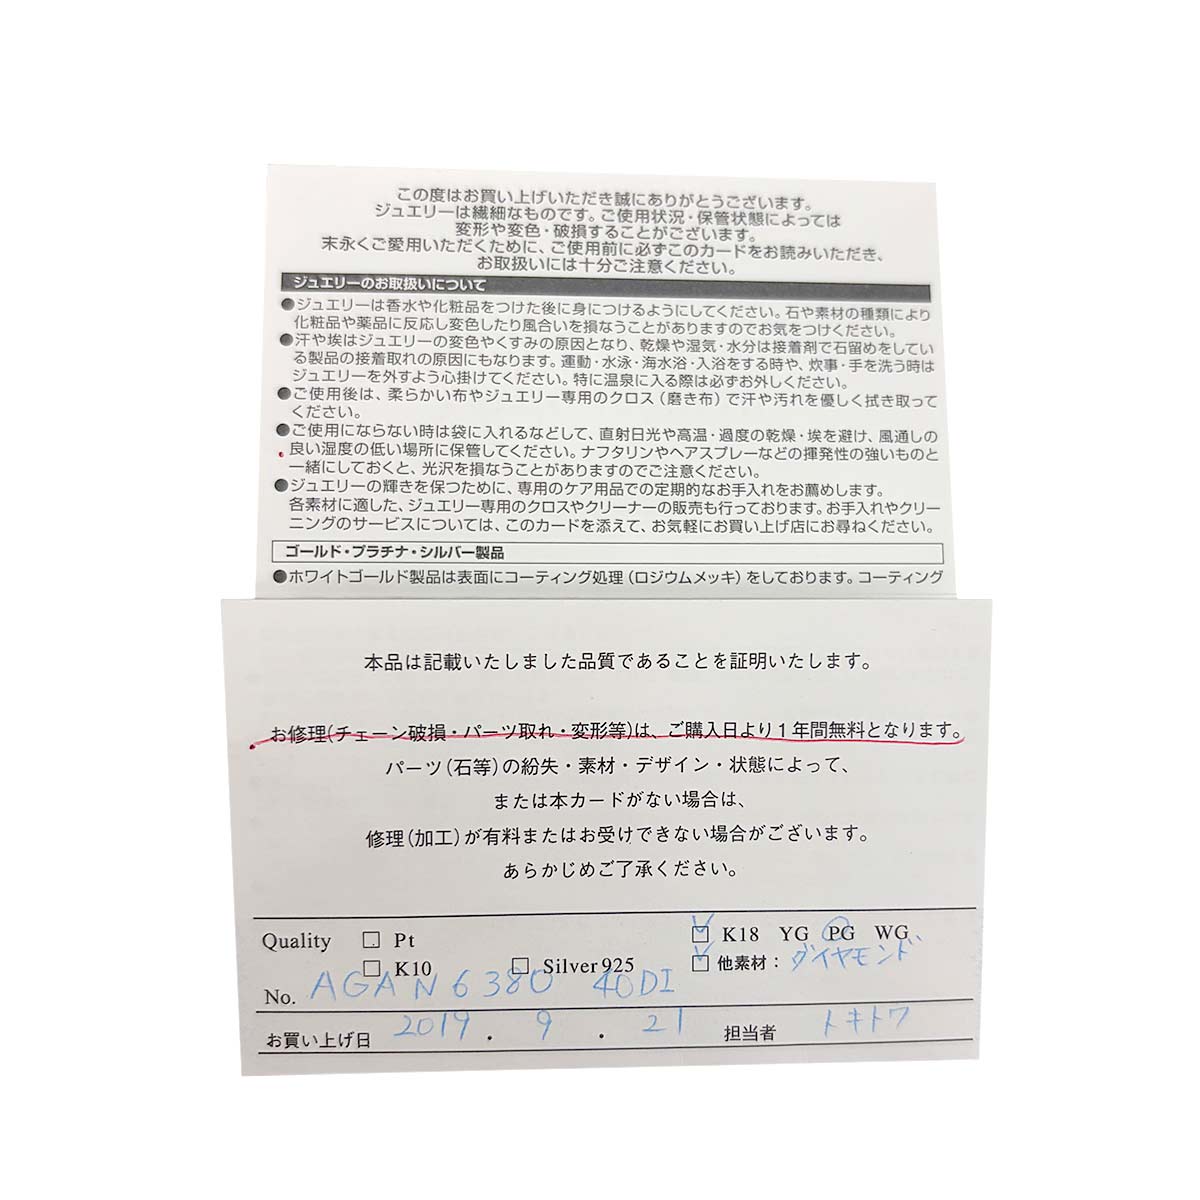 この度はお買い上げいただき誠にありがとうございます。
ジュエリーは繊細なものです。ご使用状況・保管状態によっては
変形や変色・破損することがございます。
末永くご愛用いただくために、ご使用前に必ずこのカードをお読みいただき、
お取扱いには十分ご注意ください。
ジュエリーのお取扱いについて
●ジュエリーは香水や化粧品をつけた後に身につけるようにしてください。石や素材の種類により
化粧品や薬品に反応し変色したり風合いを損なうことがありますのでお気をつけください。
●汗や埃はジュエリーの変色やくすみの原因となり、乾燥や湿気・水分は接着剤で石留めをしてい
る製品の接着取れの原因にもなります。運動・水泳・海水浴・入浴をする時や、炊事・手を洗う時は
ジュエリーを外すよう心掛けてください。特に温泉に入る際は必ずお外しください。
●ご使用後は、柔らかい布やジュエリー専用のクロス（磨き布）で汗や汚れを優しく拭き取って
ください。
●ご使用にならない時は袋に入れるなどして、直射日光や高温・過度の乾燥・埃を避け、風通しの
良い湿度の低い場所に保管してください。ナフタリンやヘアスプレーなどの揮発性の強いものと
一緒にしておくと、光沢を損なうことがありますのでご注意ください。
●ジュエリーの輝きを保つために、専用のケア用品での定期的なお手入れをお薦めします。
各素材に適した、ジュエリー専用のクロスやクリーナーの販売も行っております。お手入れやクリー
ニングのサービスについては、このカードを添えて、お気軽にお買い上げ店にお尋ねください。
ゴールド・プラチナ・シルバー製品
●ホワイトゴールド製品は表面にコーティング処理（ロジウムメッキ）をしております。コーティング
本品は記載いたしました品質であることを証明いたします。
お修理(チェーン破損・パーツ取れ・変形等)は、ご購入日より1年間無料となります。
パーツ(石等)の紛失・素材・デザイン・状態によって、
または本カードがない場合は、
修理(加工)が有料またはお受けできない場合がございます。
あらかじめご了承ください。
Quality □ Pt ☑ K18 YG PG WG
□ K10 □ Silver925 ☑ 他素材：ダイヤモンド
No. AGAN6380 40DI
お買い上げ日 2019 . 9 . 21 担当者 トキトワ